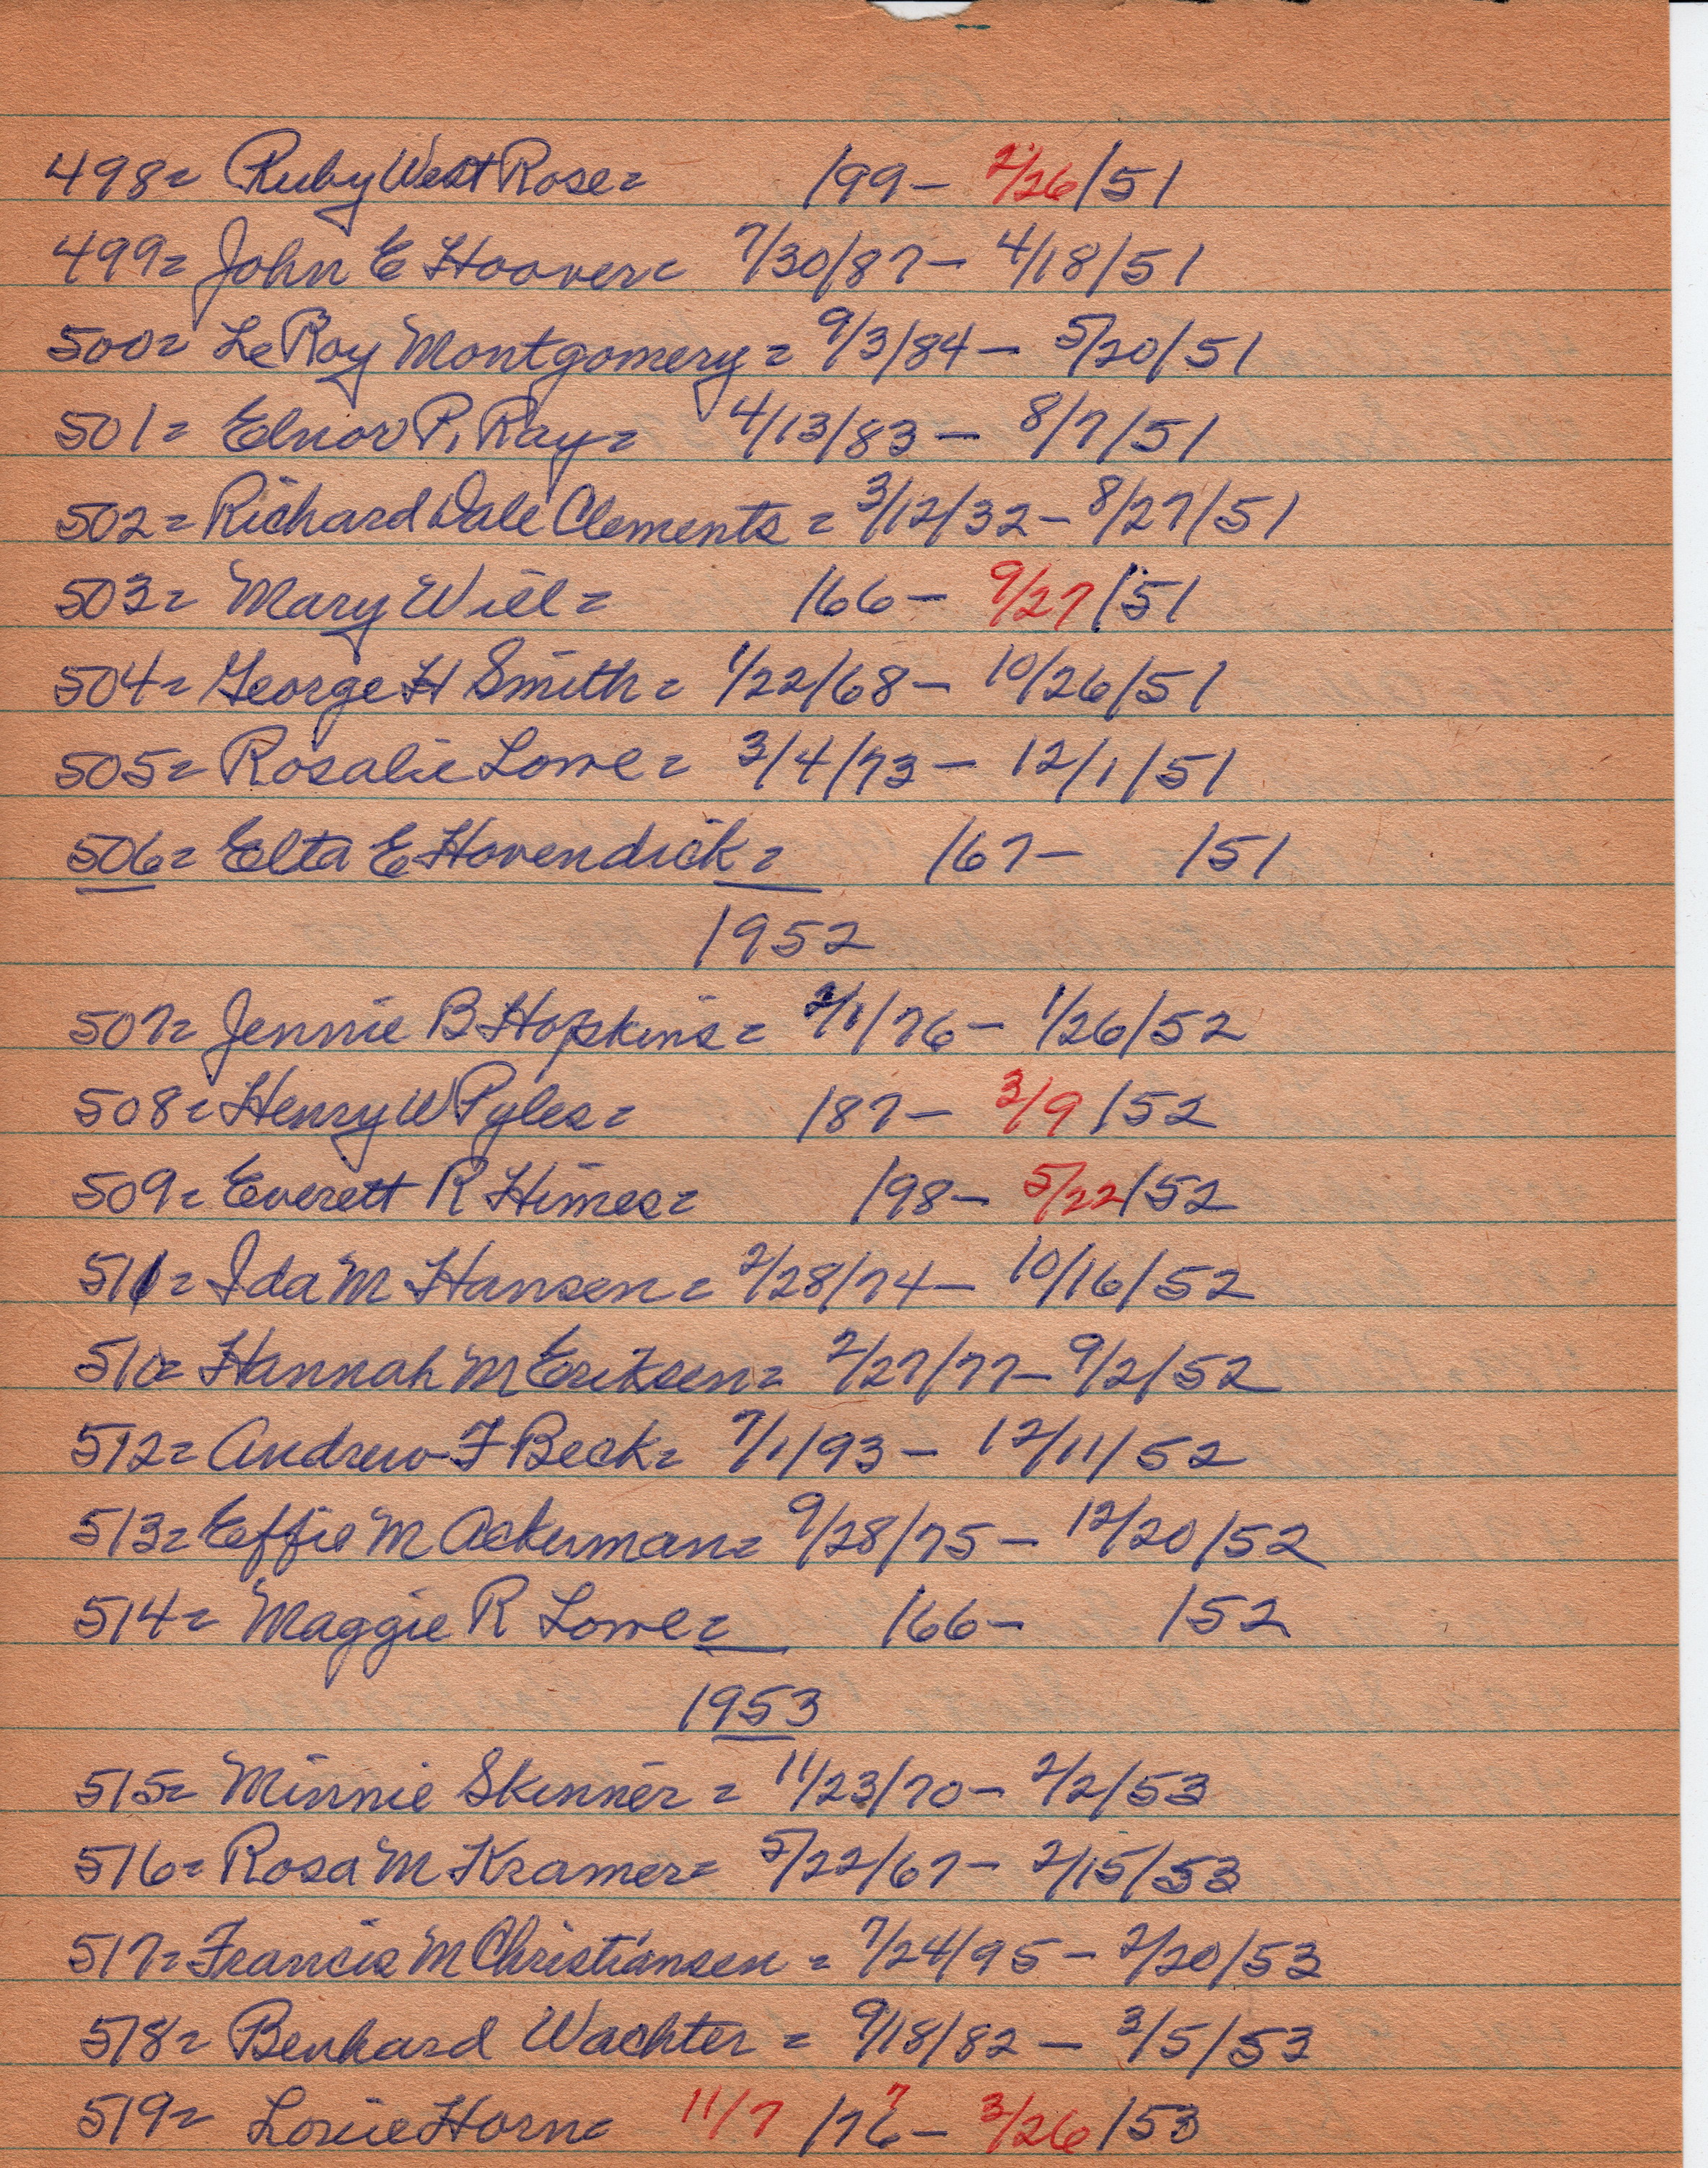 498= Ruby West Rose= /99- 2/26/51
499= John E Hoover= 7/30/87- 4/18/51
500= LeRoy Montgomery= 9/3/84- 5/20/51
501= Elnor P. Ray= 4/13/83- 8/7/51
502= Richard Dale Clements= 3/12/32- 8/27/51
503= Mary Will= /66- 9/27/51
504= George H Smith= 1/22/68- 10/26/51
505= Rosalie Lowe= 3/4/73- 12/1/51
506= Elta E Hovendick= /67- /51
1952
507= Jennie B Hopkins= 2/1/76- 1/26/52
508= Henry W Pyles= /87- 3/9/52
509= Everett R Himes= /98- 5/22/52
511= Ida M Hansen= 2/28/74- 10/16/52
510= Hannah M Eriksen= 2/27/77- 9/2/52
512= Andrew F Beck= 7/1/93- 12/11/52
513= Effie M Ackerman= 9/28/75- 12/20/52
514= Maggie R Lowe= /66- /52
1953
515= Minnie Skinner= 11/23/70- 2/2/53
516= Rosa M Kramer= 5/22/67- 2/15/53
517= Francis M Christiansen= 7/24/95- 2/20/53
518= Benhard Wachter= 9/18/82- 3/5/53
519= Horn= 11/7 /76 7- 3/26/53